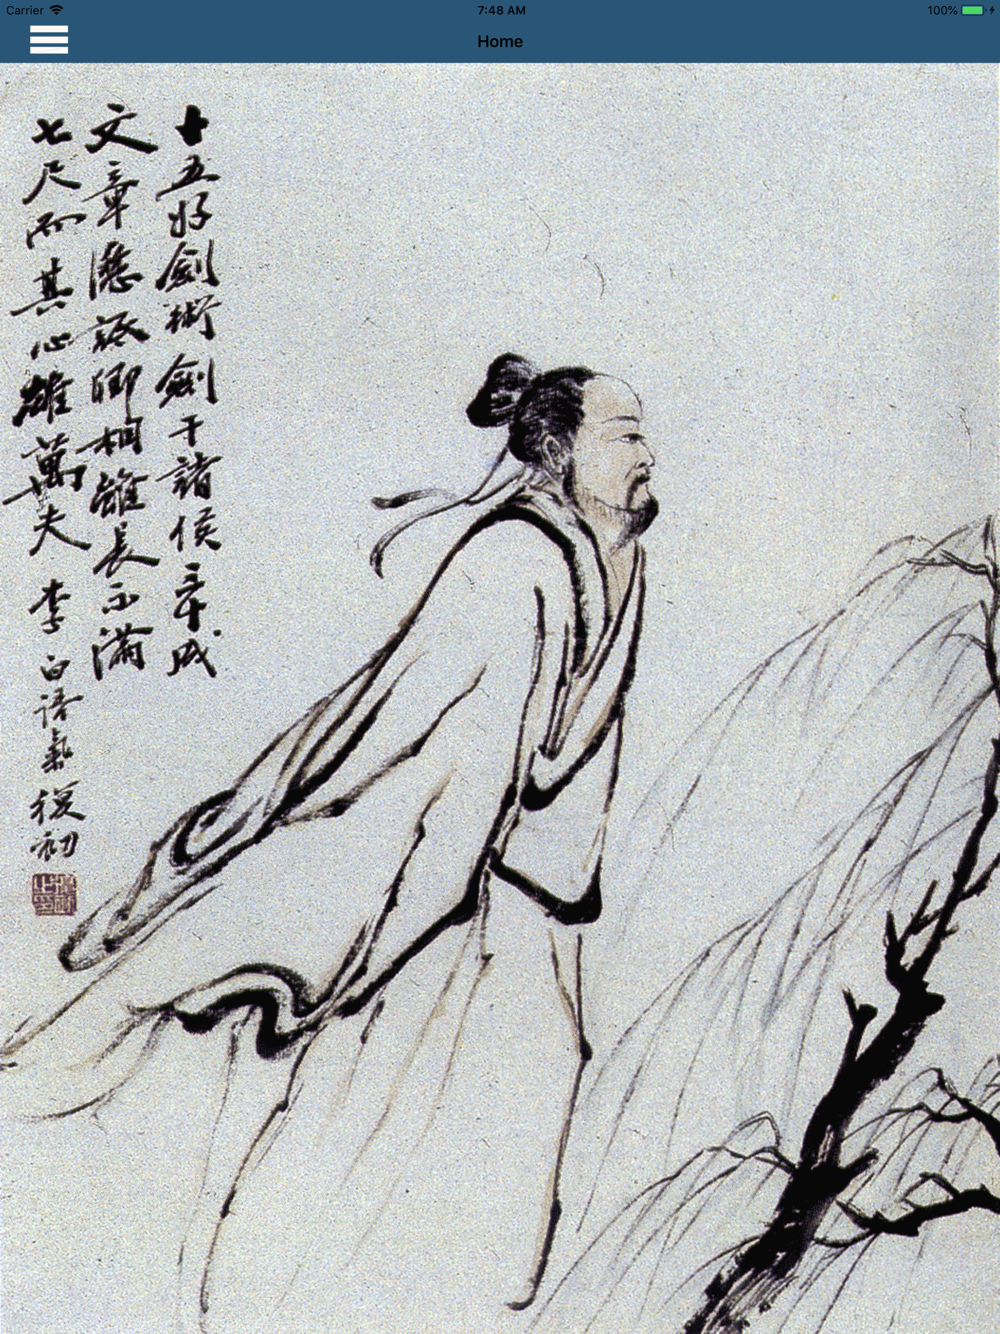 Carrier 7:48 AM 100%
Home
十五好劍術劍干諸侯三十成
文章歷詆卿相雖長不滿
七尺而其心雄萬夫 李白語氣 復初